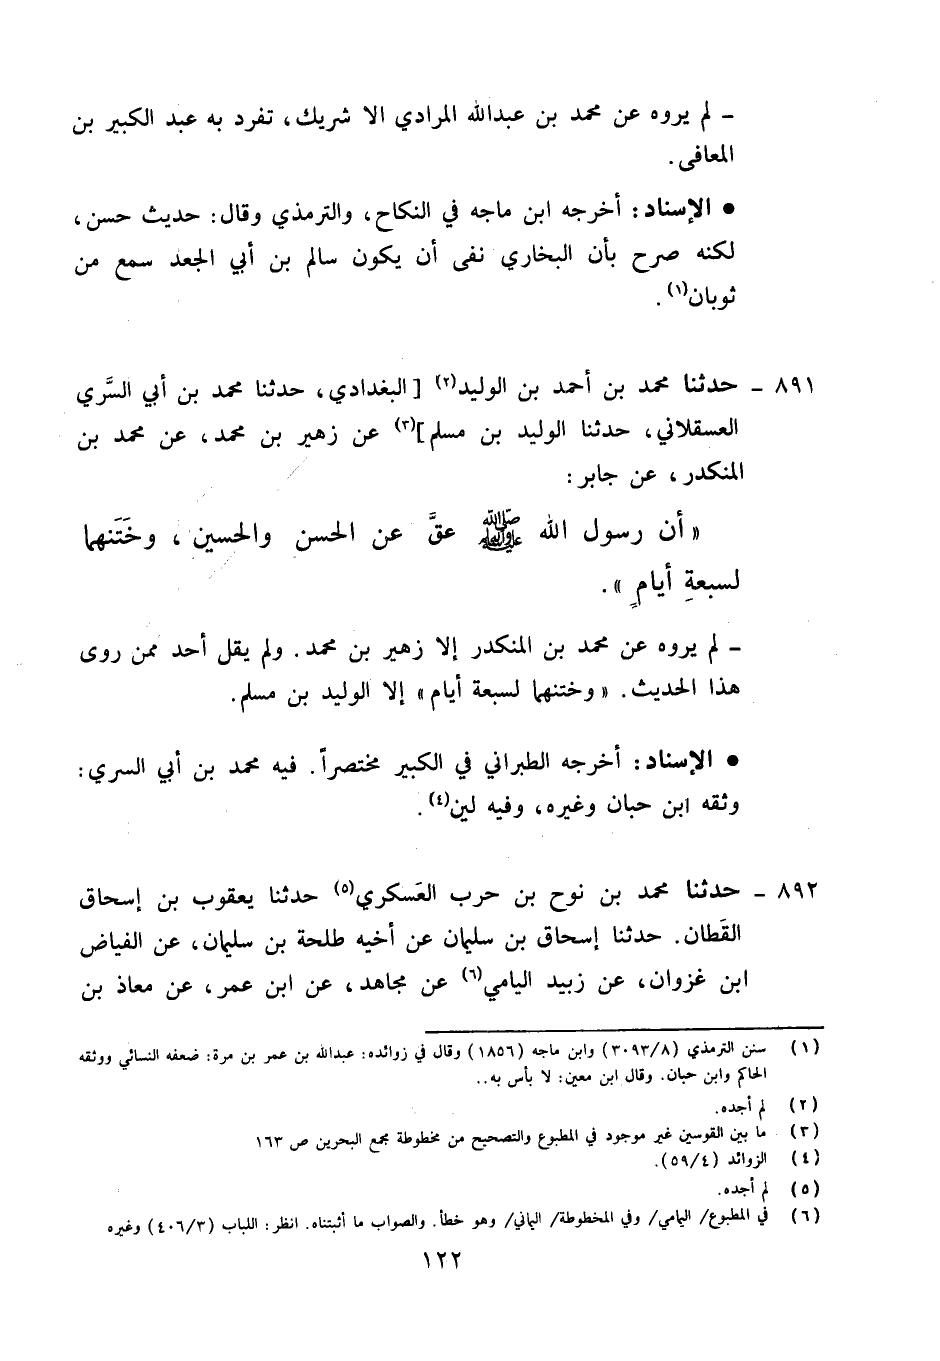 ــ لم يروه عن محمد بن عبدالله المرادي الا شريك، تفرد به عبد الكبير بن
المعافى.
● الإسناد: أخرجه ابن ماجه في النكاح، والترمذي وقال: حديث حسن،
لكنه صرح بأن البخاري نفى أن يكون سالم بن أبي الجعد سمع من
ثوبان(١).
٨٩١ ــ حدثنا محمد بن أحمد بن الوليد(٢) [البغدادي، حدثنا محمد بن أبي السَّري
العسقلاني، حدثنا الوليد بن مسلم](٣) عن زهير بن محمد، عن محمد بن
المنكدر، عن جابر:
«أن رسول الله ﷺ عقَّ عن الحسن والحسين، وخَتَنهما
لسبعةِ أيامٍ».
ــ لم يروه عن محمد بن المنكدر إلا زهير بن محمد. ولم يقل أحد ممن روى
هذا الحديث. «وختنهما لسبعة أيام» إلا الوليد بن مسلم.
● الإسناد: أخرجه الطبراني في الكبير مختصراً. فيه محمد بن أبي السري:
وثقه ابن حبان وغيره، وفيه لين(٤).
٨٩٢ ــ حدثنا محمد بن نوح بن حرب العَسكري(٥) حدثنا يعقوب بن إسحاق
القَطان. حدثنا إسحاق بن سليمان عن أخيه طلحة بن سليمان، عن الفياض
ابن غزوان، عن زبيد اليامي(٦) عن مجاهد، عن ابن عمر، عن معاذ بن
(١) سنن الترمذي (٣٠٩٣/٨) وابن ماجه (١٨٥٦) وقال في زوائده: عبدالله بن عمر بن مرة: ضعفه النسائي ووثقه
الحاكم وابن حبان. وقال ابن معين: لا بأس به..
(٢) لم أجده.
(٣) ما بين القوسين غير موجود في المطبوع والتصحيح من مخطوطة مجمع البحرين ص ١٦٣
(٤) الزوائد (٥٩/٤).
(٥) لم أجده.
(٦) في المطبوع/ اليامي/ وفي المخطوطة/ اليماني/ وهو خطأ. والصواب ما أثبتناه. انظر: اللباب (٤٠٦/٣) وغيره
١٢٢